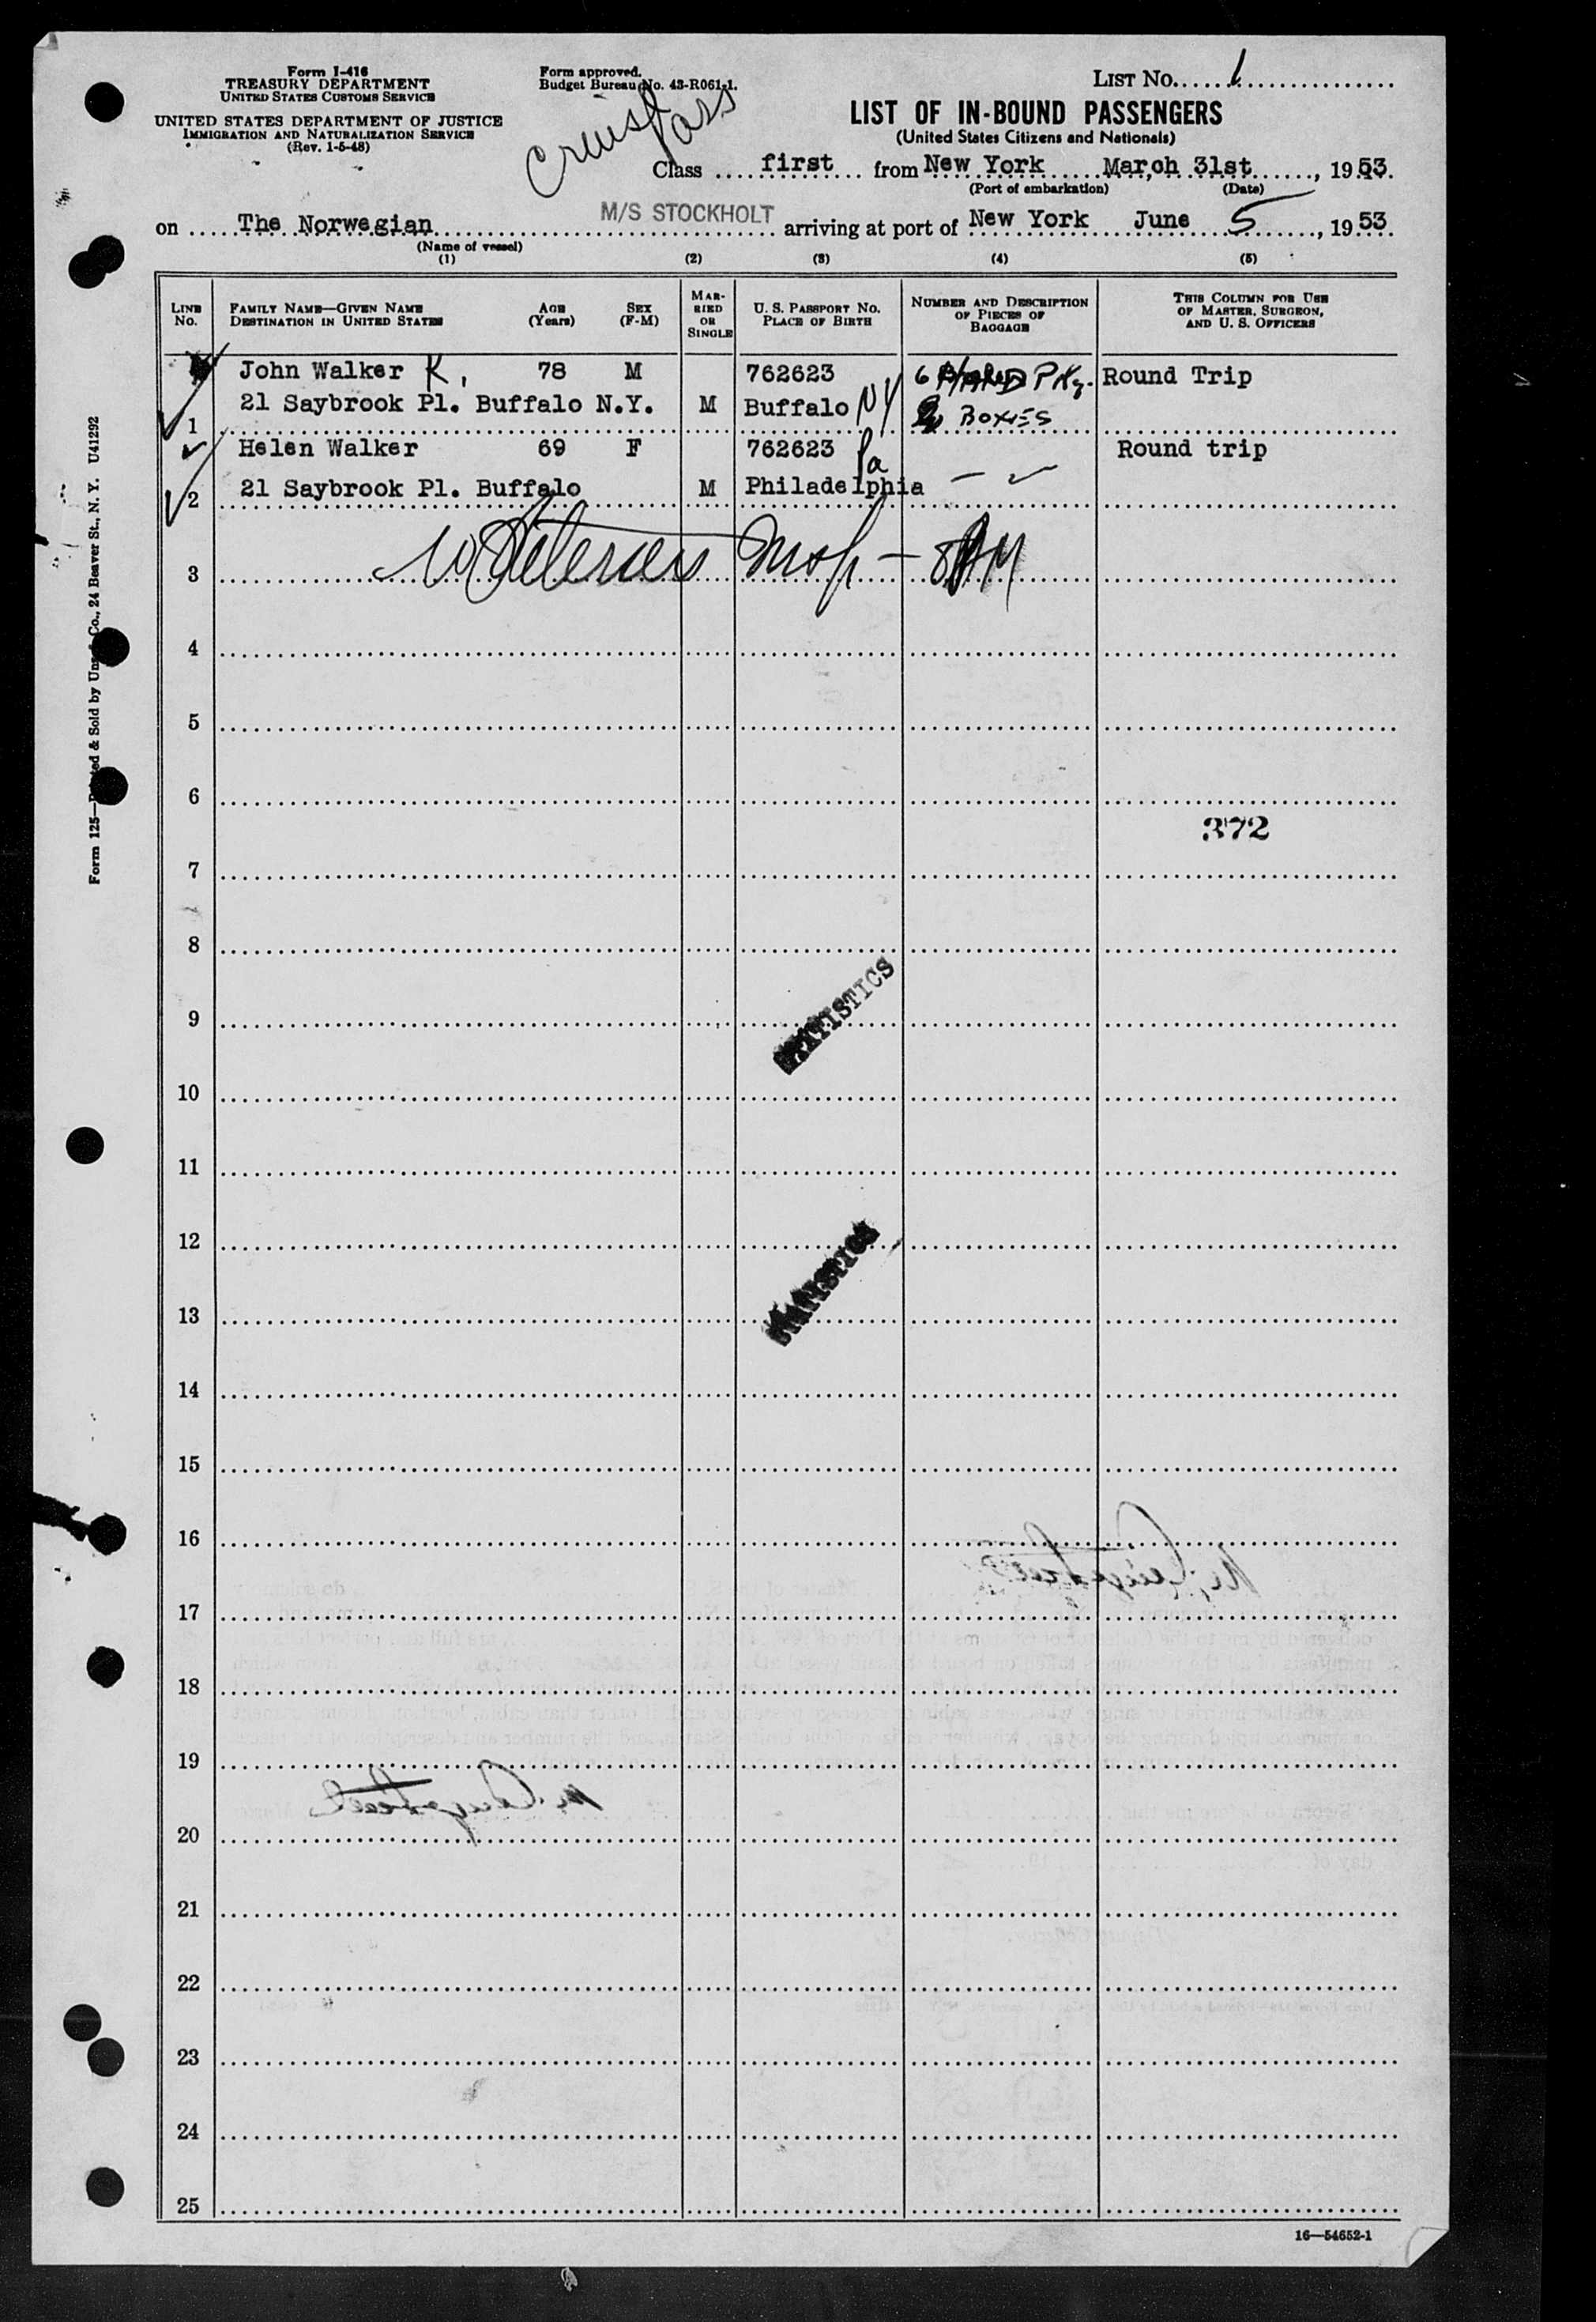 Form I-416
TREASURY DEPARTMENT
UNITED STATES CUSTOMS SERVICE
UNITED STATES DEPARTMENT OF JUSTICE
IMMIGRATION AND NATURALIZATION SERVICE
(Rev. 1-5-48)
Form approved.
Budget Bureau No. 43-R061-1.
LIST No. 1
LIST OF IN-BOUND PASSENGERS
(United States Citizens and Nationals)
Cruise Pass
Class first from New York March 31st, 1953.
(Port of embarkation) (Date)
on The Norwegian M/S STOCKHOLT arriving at port of New York June 5, 1953
(Name of vessel)
(1) (2) (3) (4) (5)
LINE No. FAMILY NAME—GIVEN NAME DESTINATION IN UNITED STATES AGE (Years) SEX (F-M) MARRIED OR SINGLE U. S. PASSPORT NO. PLACE OF BIRTH NUMBER AND DESCRIPTION OF PIECES OF BAGGAGE THIS COLUMN FOR USE OF MASTER, SURGEON, AND U. S. OFFICERS
John Walker K, 78 M 762623 6 HAND PKg. Round Trip
1 21 Saybrook Pl. Buffalo N.Y. M Buffalo NY BOXES
Helen Walker 69 F 762623 Pa Round trip
2 21 Saybrook Pl. Buffalo M Philadelphia
3
4
5
6
372
7
8
9
STATISTICS
10
11
12
13
STATISTICS
14
15
16
17
18
19
20
21
22
23
24
25
16—54652-1
Form 125—Printed & Sold by Co., 24 Beaver St., N. Y. U41292